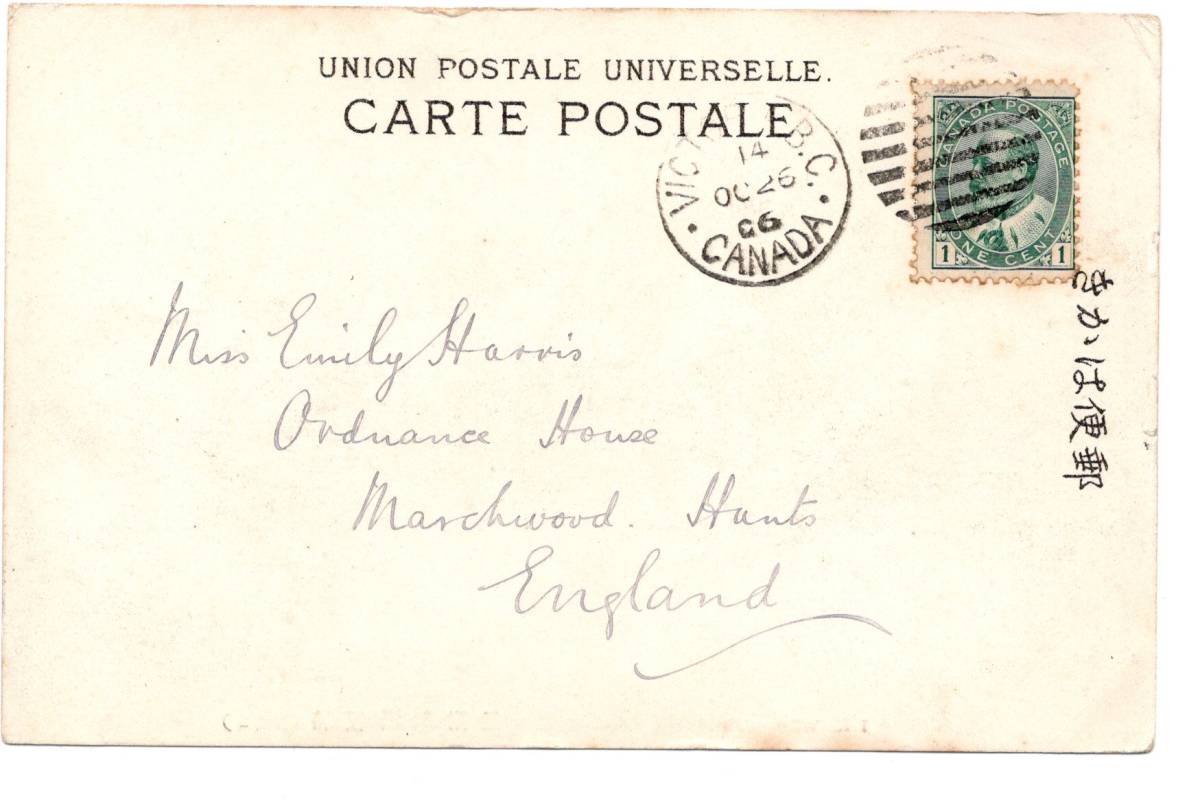 UNION POSTALE UNIVERSELLE.
CARTE POSTALE
B.C.
14
OC 26
06
CANADA
CANADA POSTAGE
ONE CENT
1 1
きかは便郵
Miss Emily Harris
Ordnance House
Marchwood. Hants
England